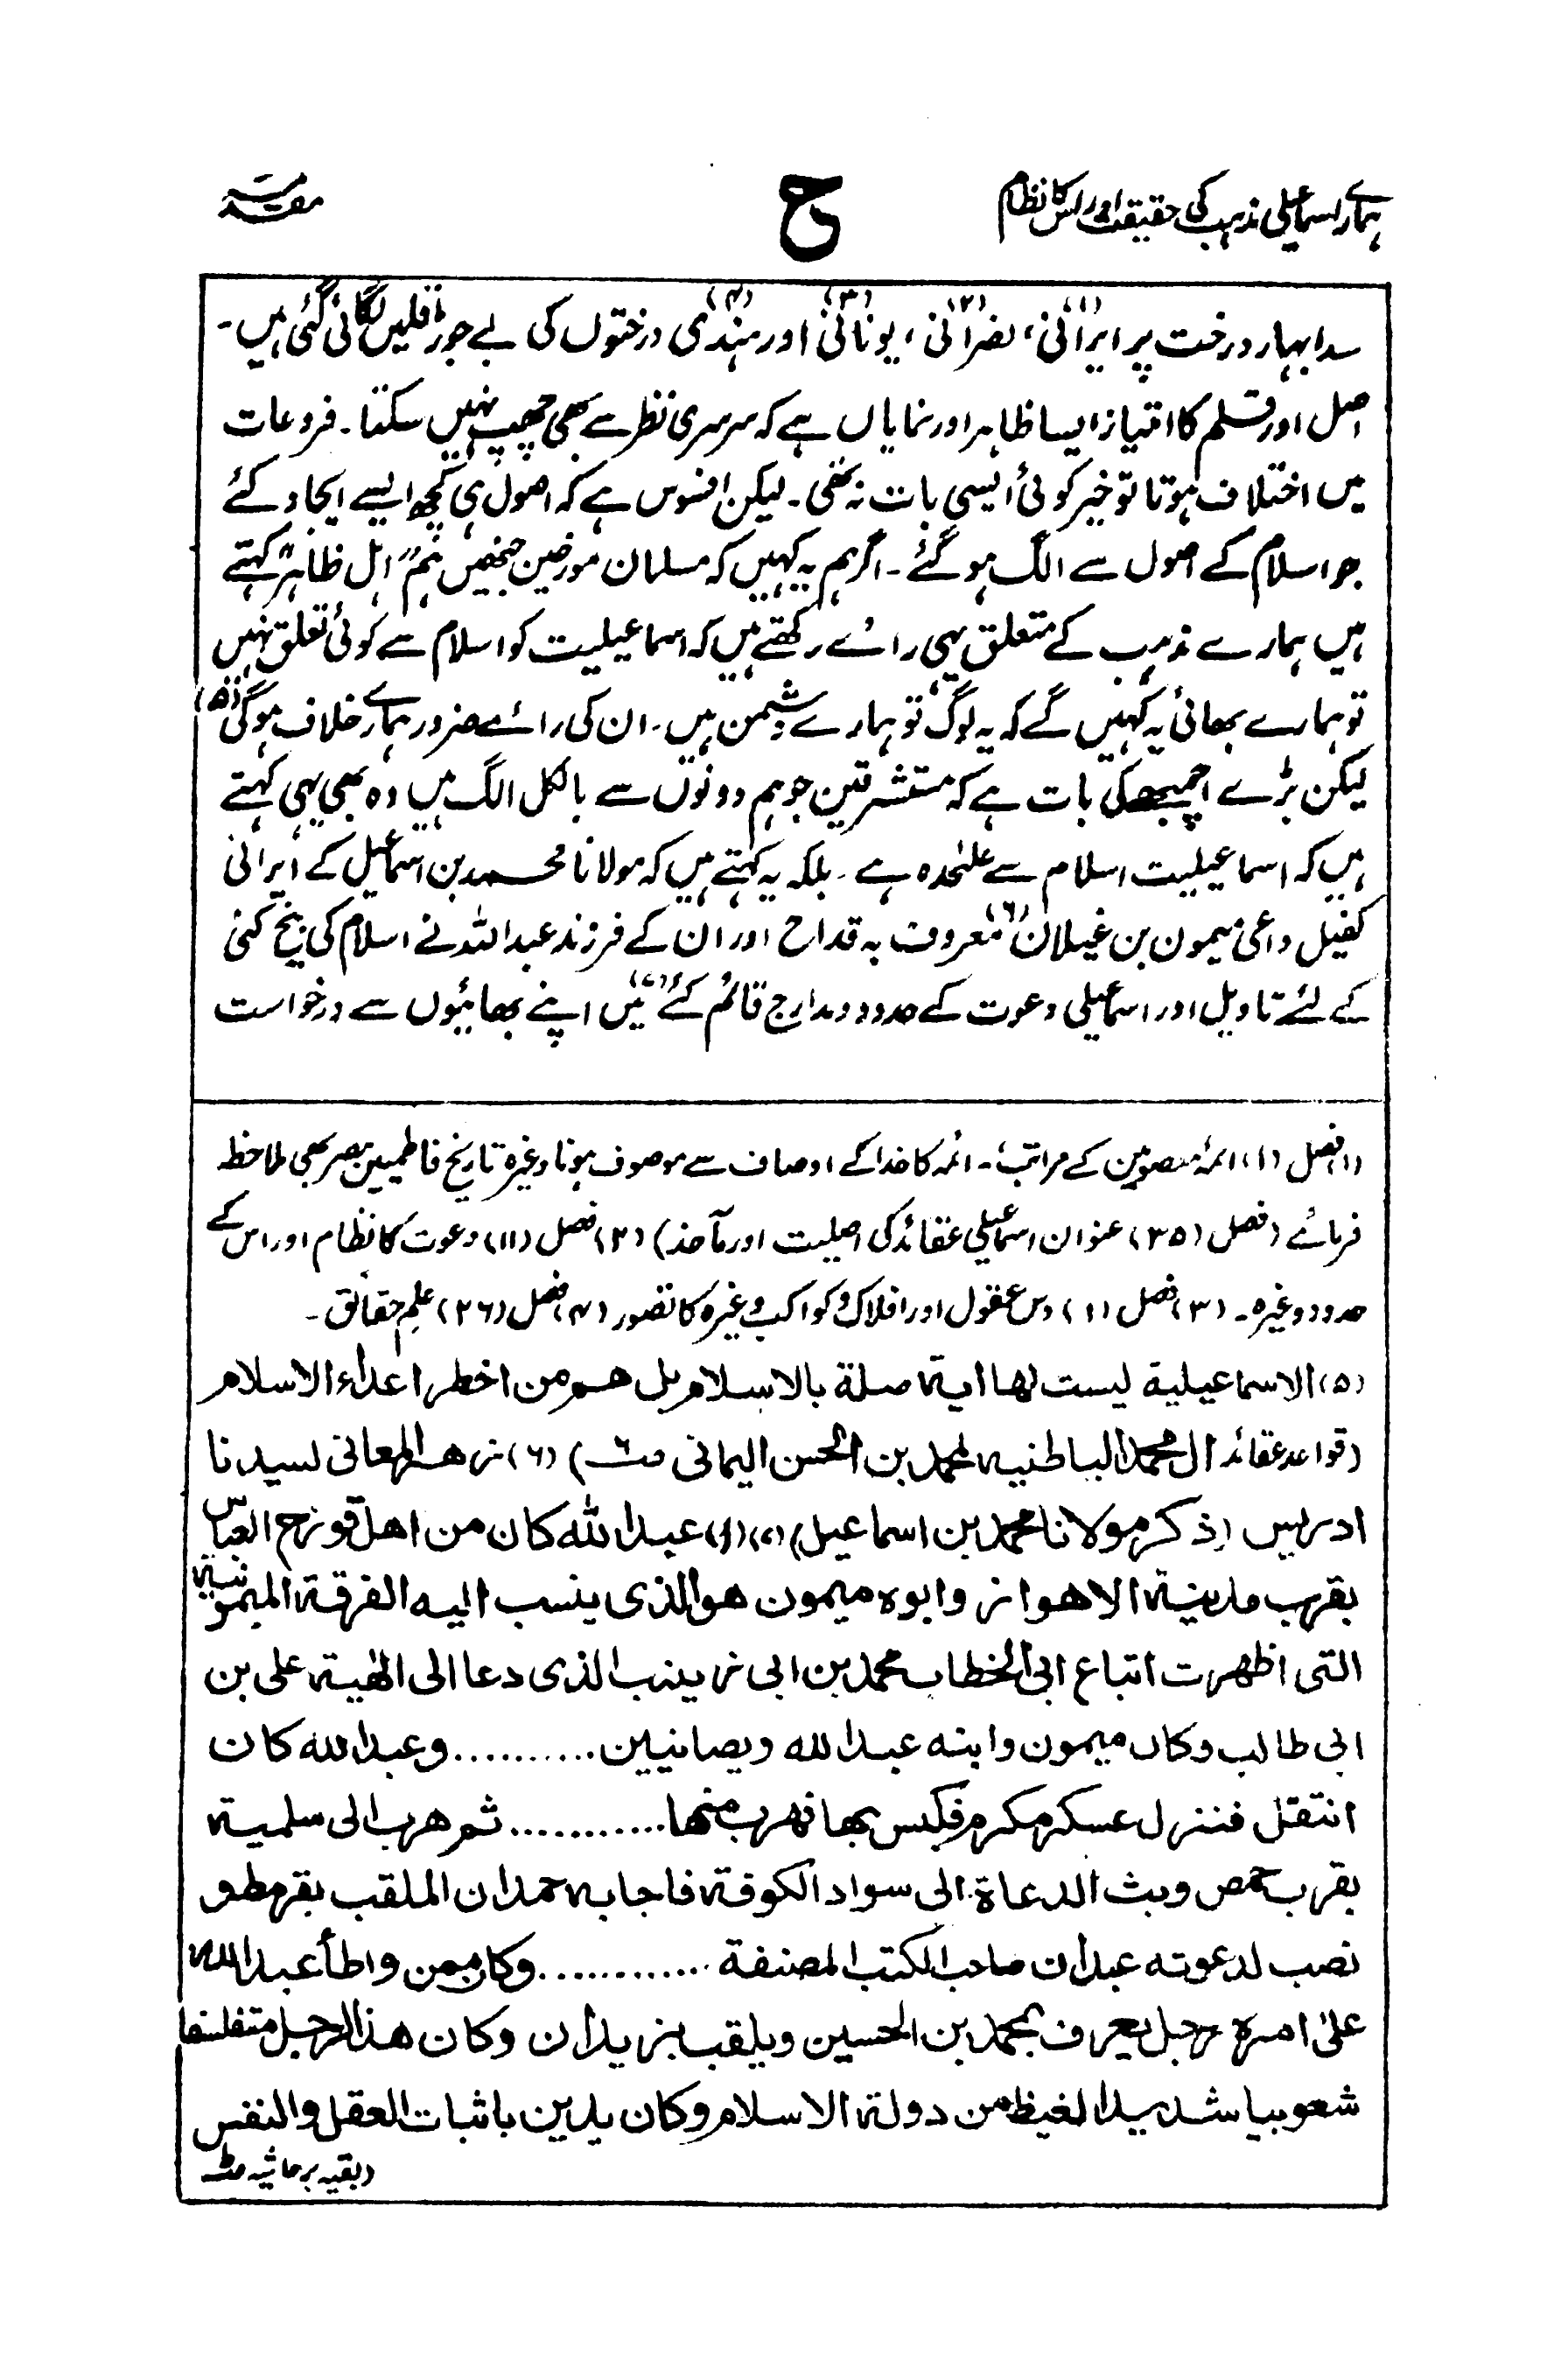 ہمارے اسماعیلی مذہب کی حقیقت اور اس کا نظام
ح
مقدمہ
سدابہار درخت پر ایرانی(۱)، نصرانی(۲)، یونانی(۳) اور ہندی(۴) درختوں کی بے جوڑ قلمیں لگائی گئی ہیں۔
اصل اور قلم کا امتیاز ایسا ظاہر اور نمایاں ہے کہ سرسری نظر سے بھی چھپ نہیں سکتا۔ فروعات
میں اختلاف ہوتا تو خیر کوئی ایسی بات نہ تھی۔ لیکن افسوس ہے کہ اصول ہی کچھ ایسے ایجاد کئے
جو اسلام کے اصول سے الگ ہو گئے۔ اگر ہم یہ کہیں کہ مسلمان مورخین جنھیں ہم "اہل ظاہر" کہتے
ہیں ہمارے مذہب کے متعلق یہی رائے رکھتے ہیں کہ اسماعیلیت کو اسلام سے کوئی تعلق نہیں
تو ہمارے بھائی یہ کہیں گے کہ یہ لوگ تو ہمارے دشمن ہیں۔ ان کی رائے ضرور ہمارے خلاف ہوگی(۵)
لیکن بڑے اچمبھے کی بات ہے کہ مستشرقین جو ہم دونوں سے بالکل الگ ہیں وہ بھی یہی کہتے
ہیں کہ اسماعیلیت اسلام سے علٰحدہ ہے۔ بلکہ یہ کہتے ہیں کہ مولانا محمد بن اسماعیل کے ایرانی
کفیل داعی میمون بن غیلان(۶) معروف بہ قداح اور ان کے فرزند عبداللہ نے اسلام کی بیخ کنی
کے لئے تاویل اور اسماعیلی دعوت کے حدود و مدارج قائم کئے(۷) میں اپنے بھائیوں سے درخواست
(۱) فصل (۱) ائمۂ معصومین کے مراتب۔ ائمہ کا خدا کے اوصاف سے موصوف ہونا وغیرہ تاریخ فاطمیین مصر بھی ملاحظہ
فرمائے (فصل (۳۵) عنوان اسماعیلی عقائد کی اصلیت اور مآخذ) (۲) فصل (۱۱) دعوت کا نظام اور اس کے
حدود وغیرہ۔ (۳) فصل (۱) دس عقول اور افلاک و کواکب وغیرہ کا تصور (۴) فصل (۲۶) علم حقائق۔
(۵) الاسماعیلیة لیست لها ایة صلة بالاسلام بل هم من اخطر اعداء الاسلام
(قواعد عقائد ال محمد الباطنیه لمحمد بن الحسن الیمانی) (۶) زهر المعانی لسیدنا
ادریس (ذکر مولانا محمد بن اسماعیل) (۷) (۱) عبدالله کان من اهل قوزح العباس
بقرب مدینة الاهواز وابوه میمون هو الذی ینسب الیه الفرقة المیمونیة
التی اظهرت اتباع ابی الخطاب محمد بن ابی زینب الذی دعا الی الٰهیة علی بن
ابی طالب وکان میمون وابنه عبدالله دیصانیین .......... وعبدالله کان
انتقل فنزل عسکر مکرم فکبس بها فهرب منها ............ ثم هرب الی سلمیة
بقرب حمص وبث الدعاة الی سواد الکوفة فاجابه حمدان الملقب بقرمط و
نصب لدعوته عبدان صاحب الکتب المصنفة ............ وکان ممن واطأ عبدالله
علی امره رجل یعرف بمحمد بن الحسین ویلقب بزیدان وکان هذا الرجل متفلسفا
شعوبیا شدید الغیظ من دولة الاسلام وکان یدین باثبات العقل والنفس
(بقیہ بر حاشیہ